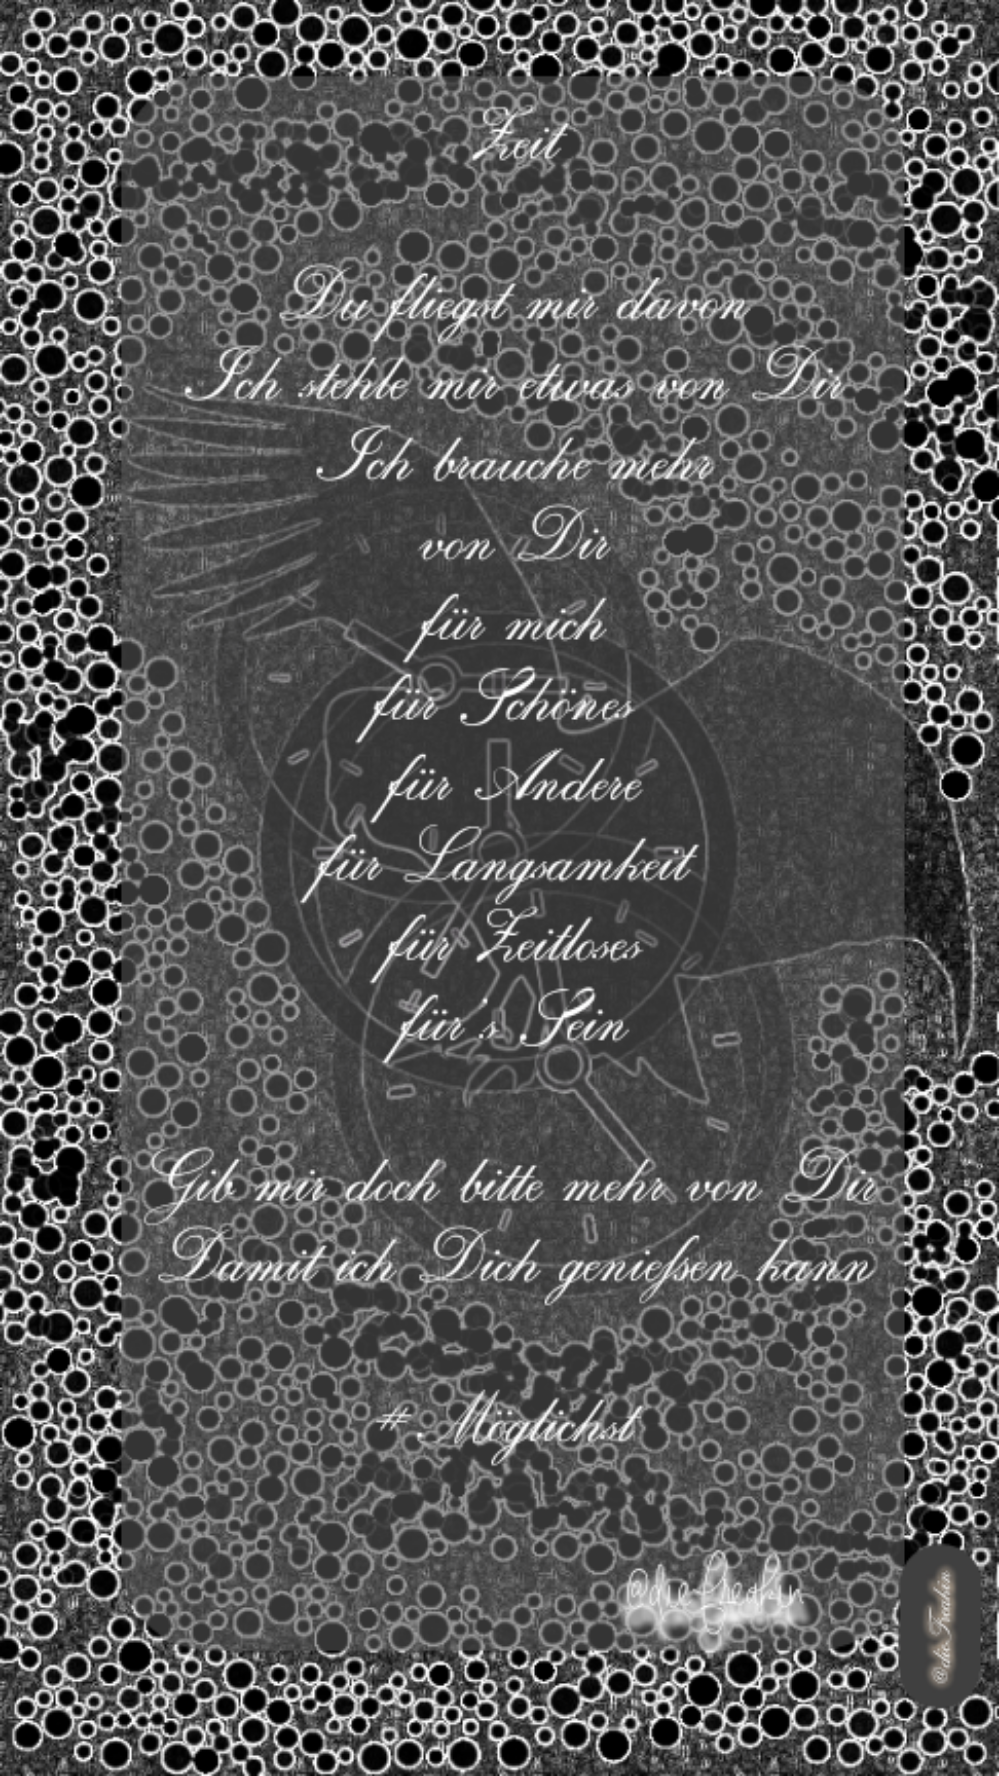 Zeit
Du fliegst mir davon
Ich stehle mir etwas von Dir
Ich brauche mehr
von Dir
für mich
für Schönes
für Andere
für Langsamkeit
für Zeitloses
für's Sein
Gib mir doch bitte mehr von Dir
Damit ich Dich genießen kann
# Möglichst
@die
@die